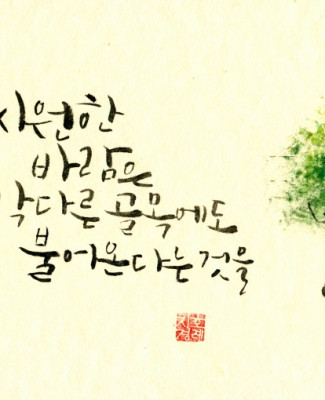 시원한
바람은
막다른 골목에도
불어온다는 것을